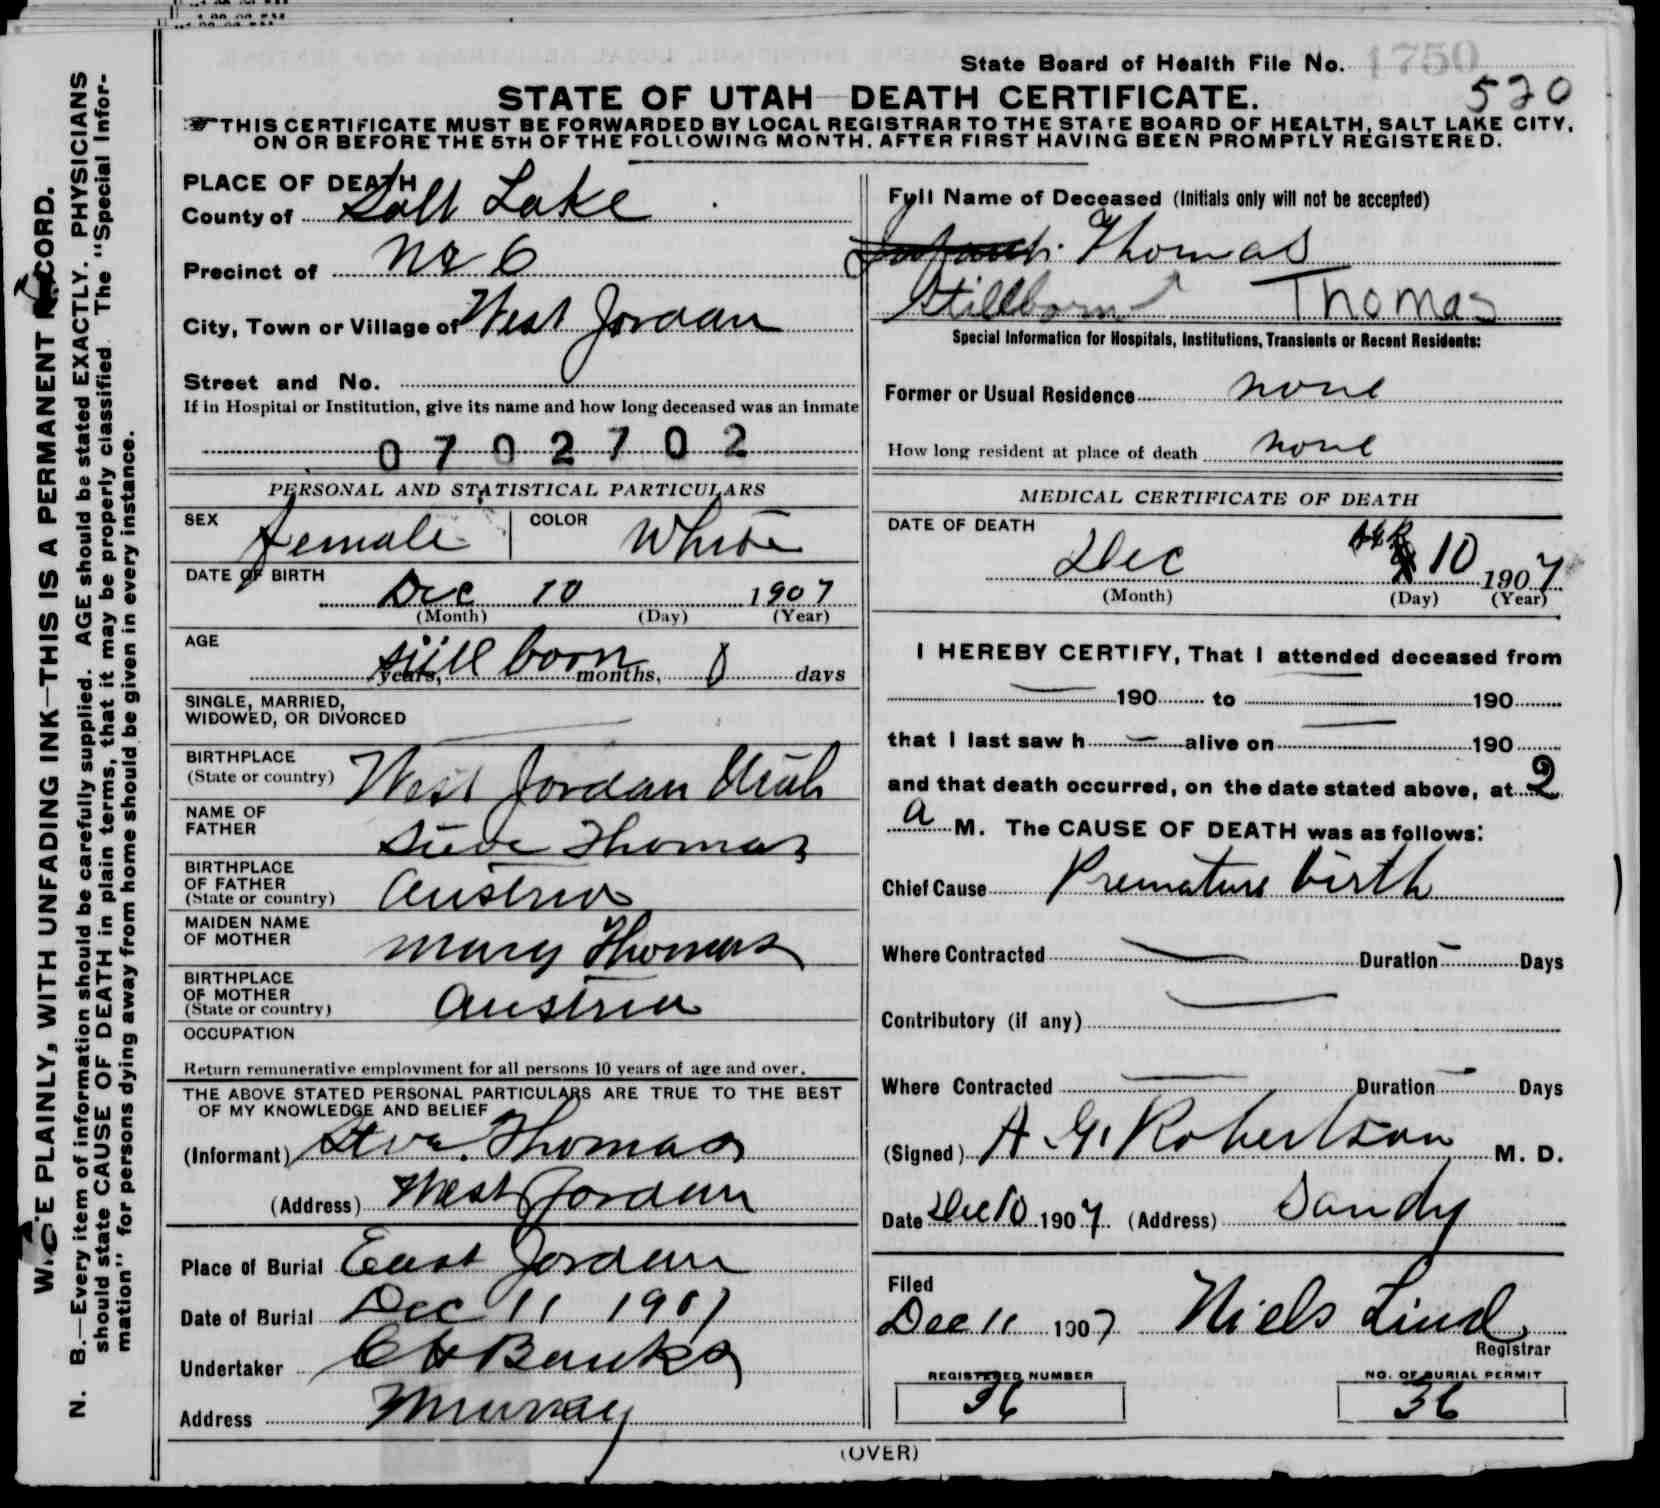 State Board of Health File No. 1750
520
STATE OF UTAH—DEATH CERTIFICATE.
THIS CERTIFICATE MUST BE FORWARDED BY LOCAL REGISTRAR TO THE STATE BOARD OF HEALTH, SALT LAKE CITY,
ON OR BEFORE THE 5TH OF THE FOLLOWING MONTH, AFTER FIRST HAVING BEEN PROMPTLY REGISTERED.
PLACE OF DEATH
County of Salt Lake
Precinct of No 6
City, Town or Village of West Jordan
Street and No.
If in Hospital or Institution, give its name and how long deceased was an inmate
0702702
PERSONAL AND STATISTICAL PARTICULARS
SEX Female COLOR White
DATE OF BIRTH
Dec 10 1907
(Month) (Day) (Year)
AGE
still born years, months, 0 days
SINGLE, MARRIED,
WIDOWED, OR DIVORCED
BIRTHPLACE
(State or country) West Jordan Utah
NAME OF
FATHER Steve Thomas
BIRTHPLACE
OF FATHER
(State or country) Austria
MAIDEN NAME
OF MOTHER Mary Thomas
BIRTHPLACE
OF MOTHER
(State or country) Austria
OCCUPATION
Return remunerative employment for all persons 10 years of age and over.
THE ABOVE STATED PERSONAL PARTICULARS ARE TRUE TO THE BEST
OF MY KNOWLEDGE AND BELIEF
(Informant) Steve Thomas
(Address) West Jordan
Place of Burial East Jordan
Date of Burial Dec 11 1907
Undertaker Banks
Address Murray
Full Name of Deceased (Initials only will not be accepted)
Thomas
Stillborn Thomas
Special Information for Hospitals, Institutions, Transients or Recent Residents:
Former or Usual Residence none
How long resident at place of death none
MEDICAL CERTIFICATE OF DEATH
DATE OF DEATH
Dec 10 1907
(Month) (Day) (Year)
I HEREBY CERTIFY, That I attended deceased from
— 190 to — 190
that I last saw h — alive on — 190
and that death occurred, on the date stated above, at 2
a M. The CAUSE OF DEATH was as follows:
Chief Cause Premature birth
Where Contracted — Duration — Days
Contributory (if any) —
Where Contracted — Duration — Days
(Signed) A. G. Robertson M. D.
Date Dec 10 1907 (Address) Sandy
Filed
Dec 11 1907 Niels Lind
Registrar
REGISTERED NUMBER
36
NO. OF BURIAL PERMIT
36
(OVER)
WRITE PLAINLY, WITH UNFADING INK—THIS IS A PERMANENT RECORD.
N. B.—Every item of information should be carefully supplied. AGE should be stated EXACTLY. PHYSICIANS
should state CAUSE OF DEATH in plain terms, that it may be properly classified. The "Special Infor-
mation" for persons dying away from home should be given in every instance.